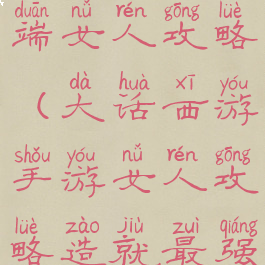 duān nǚ rén gōng lüè
端女人攻略
dà huà xī yóu
（大话西游
shǒu yóu nǚ rén gōng
手游女人攻
lüè zào jiù zuì qiáng
略造就最强